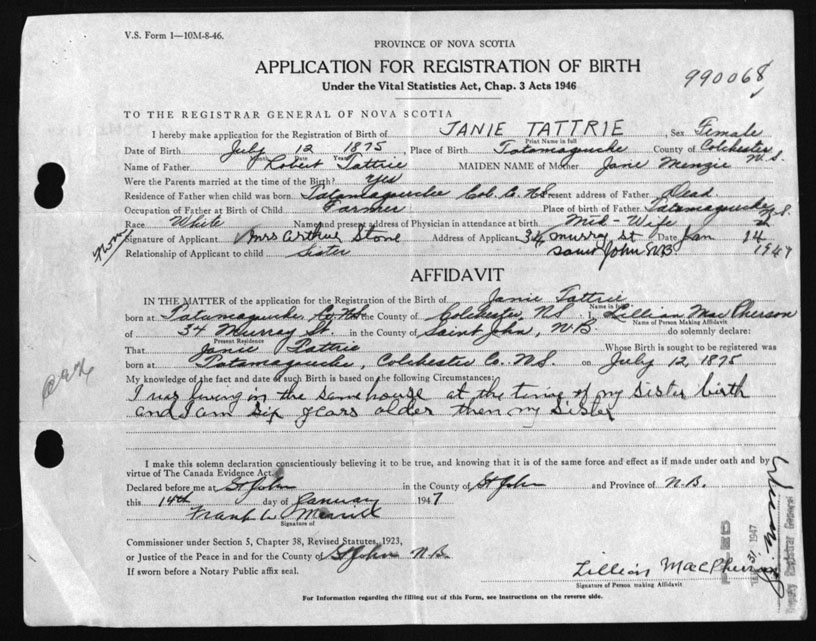 V.S. Form 1—10M-8-46.
PROVINCE OF NOVA SCOTIA
APPLICATION FOR REGISTRATION OF BIRTH
990068
Under the Vital Statistics Act, Chap. 3 Acts 1946
TO THE REGISTRAR GENERAL OF NOVA SCOTIA
I hereby make application for the Registration of Birth of JANIE TATTRIE, Sex Female
Print Name in full
Date of Birth July 12 1875, Place of Birth Tatamagouche County of Colchester N.S.
Month Date Year
Name of Father Robert Tattrie MAIDEN NAME of Mother Jane Menzie
Were the Parents married at the time of the Birth? Yes
Residence of Father when child was born Tatamagouche Col. Co. N.S. Present address of Father Dead
Occupation of Father at Birth of Child Farmer Place of birth of Father Tatamagouche N.S.
Race White Name and present address of Physician in attendance at birth Mid Wife
Signature of Applicant Mrs Arthur Stone Address of Applicant 34 Murray St Date Jan 14
Relationship of Applicant to child Sister Saint John N.B. 1947
AFFIDAVIT
IN THE MATTER of the application for the Registration of the Birth of Janie Tattrie
Name in full
born at Tatamagouche, Co. N.S. in the County of Colchester, N.S. I, Lillian MacPherson
Name of Person Making Affidavit
of 34 Murray St. in the County of Saint John, N.B. do solemnly declare:
Present Residence
That Janie Tattrie Whose Birth is sought to be registered was
born at Tatamagouche, Colchester Co. N.S. on July 12, 1875
My knowledge of the fact and date of such Birth is based on the following Circumstances:
I was living in the same house at the time of my sister birth
and I am six years older then my sister
I make this solemn declaration conscientiously believing it to be true, and knowing that it is of the same force and effect as if made under oath and by
virtue of The Canada Evidence Act.
Declared before me at St John in the County of St John and Province of N.B.
this 14th day of January 1947
Frank W
Signature of
Commissioner under Section 5, Chapter 38, Revised Statutes, 1923,
or Justice of the Peace in and for the County of St John N.B.
If sworn before a Notary Public affix seal.
Lillian MacPherson
Signature of Person making Affidavit.
For Information regarding the filling out of this Form, see instructions on the reverse side.
FILED
31 1947
Deputy Registrar General